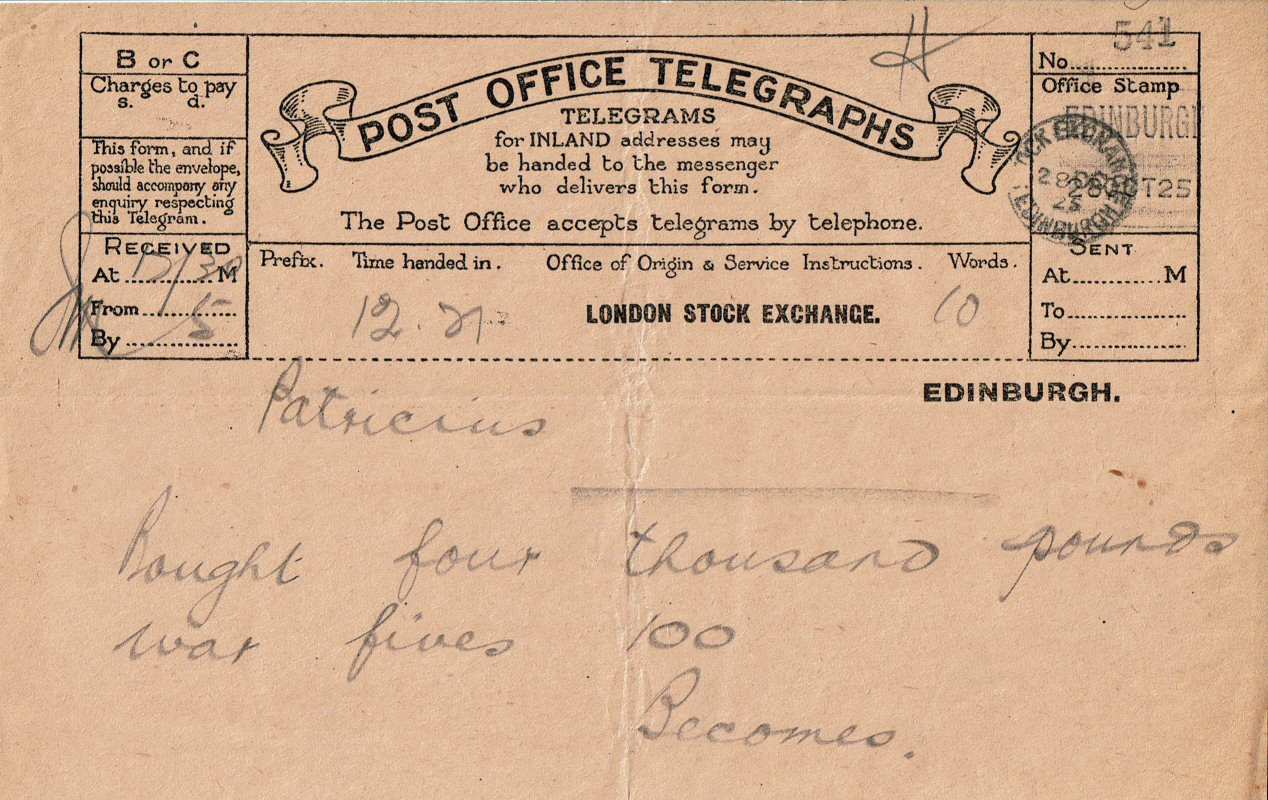 B or C
Charges to pay
s. d.
This form, and if
possible the envelope,
should accompany any
enquiry respecting
this Telegram.
RECEIVED
At 12/30 M
From 5
By
POST OFFICE TELEGRAPHS
TELEGRAMS
for INLAND addresses may
be handed to the messenger
who delivers this form.
The Post Office accepts telegrams by telephone.
H
541
No.
Office Stamp
EDINBURGH
28 OCT 25
STOCK EXCHANGE
28 OC
25
EDINBURGH
SENT
At M
To
By
Prefix. Time handed in. Office of Origin & Service Instructions. Words.
12.21 LONDON STOCK EXCHANGE. 10
EDINBURGH.
Patricius
Bought four thousand pounds
war fives 100
Becomes.